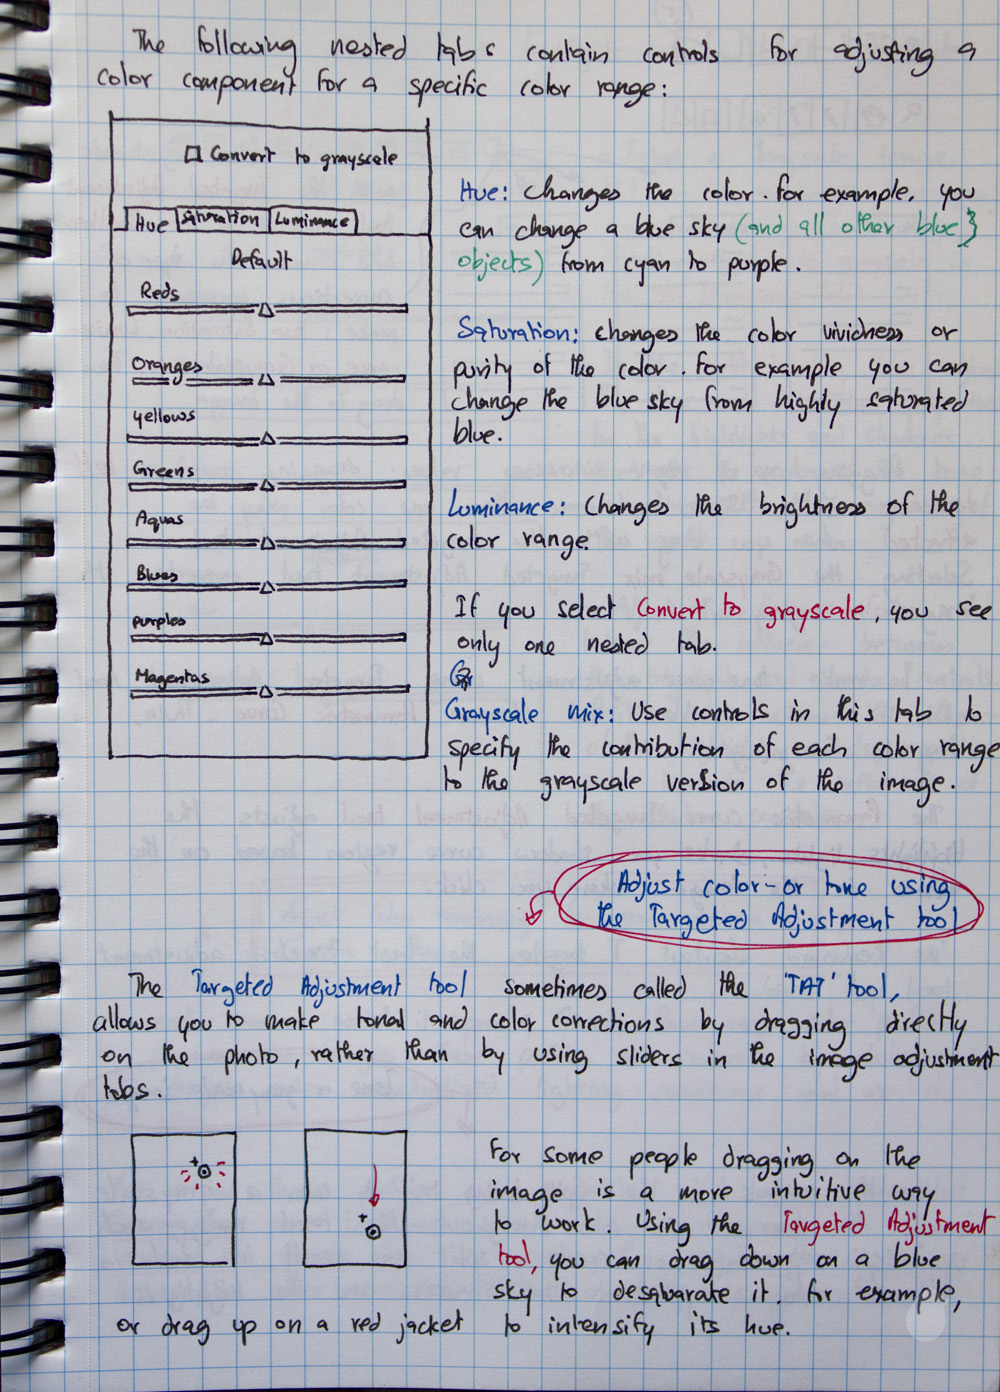 The following nested tabs contain controls for adjusting a
color component for a specific color range:
Convert to grayscale
Hue Saturation Luminance
Default
Reds
Oranges
yellows
Greens
Aquas
Blues
purples
Magentas
Hue: Changes the color. For example, you
can change a blue sky (and all other blue}
objects) from cyan to purple.
Saturation: changes the color vividness or
purity of the color. For example you can
change the blue sky from highly saturated
blue.
Luminance: Changes the brightness of the
color range.
If you select Convert to grayscale, you see
only one nested tab.
Grayscale mix: Use controls in this tab to
specify the contribution of each color range
to the grayscale version of the image.
Adjust color-or tone using
the Targeted Adjustment tool
The Targeted Adjustment tool sometimes called the 'TAT' tool,
allows you to make tonal and color corrections by dragging directly
on the photo, rather than by using sliders in the image adjustment
tabs.
For some people dragging on the
image is a more intuitive way
to work. Using the Targeted Adjustment
tool, you can drag down on a blue
sky to desquarate it. for example,
or drag up on a red jacket to intensify its hue.